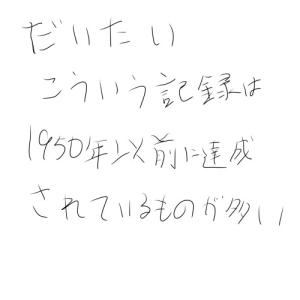 だいたい
こういう記録は
1950年以前に達成
されているものが多い